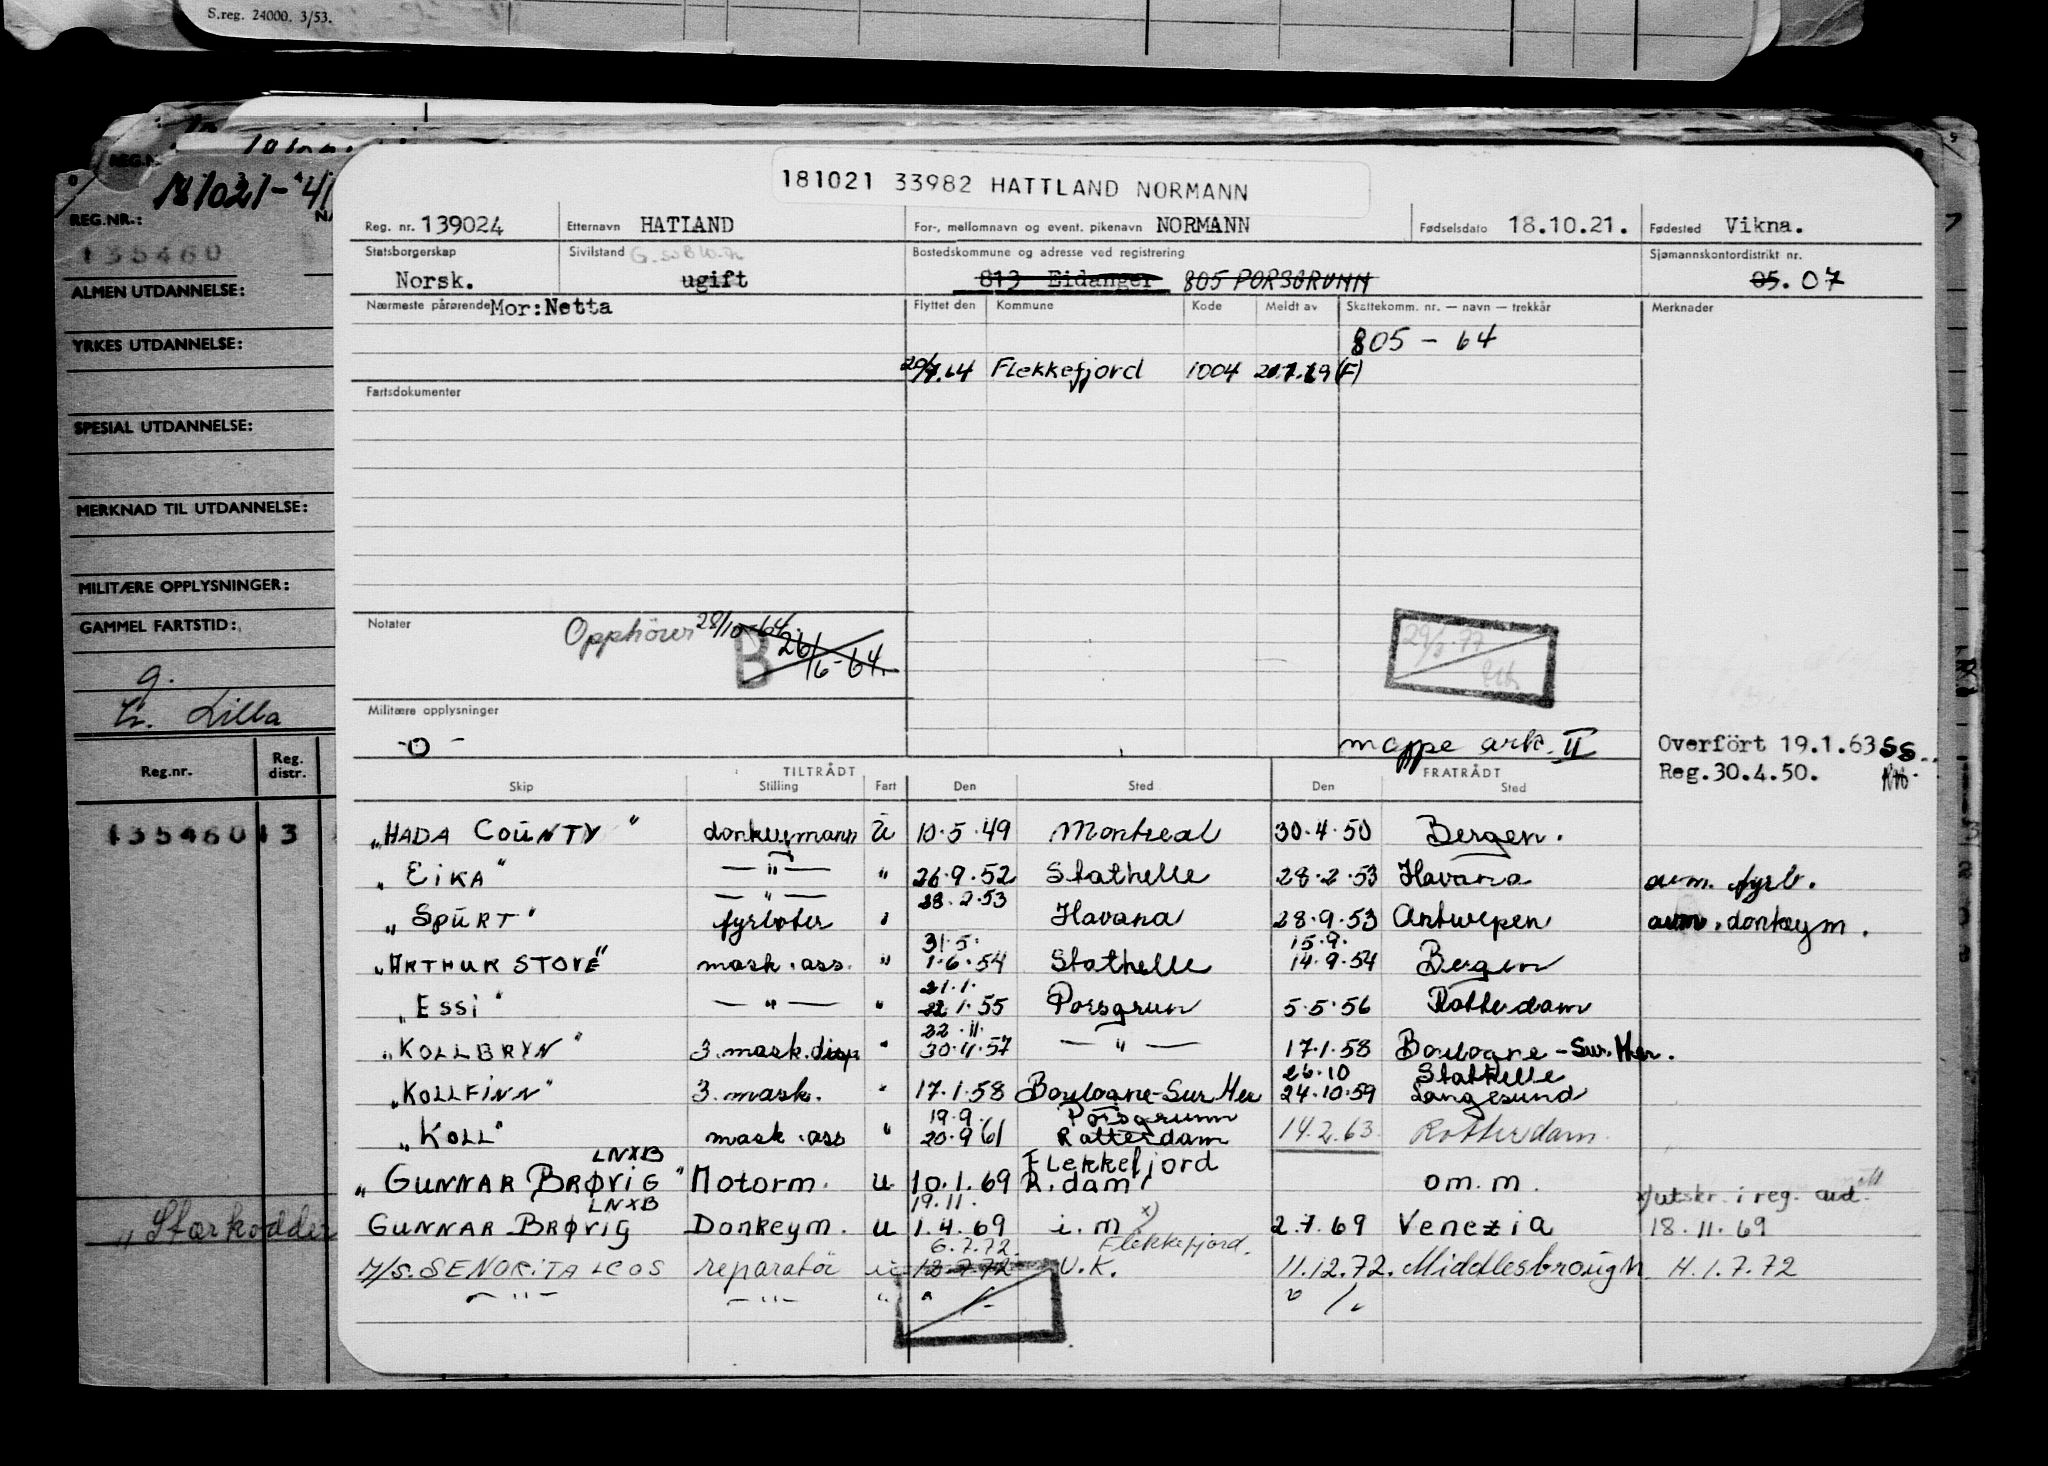 S.reg. 24000. 3/53.
REG.NR.:
135460
ALMEN UTDANNELSE:
YRKES UTDANNELSE:
SPESIAL UTDANNELSE:
MERKNAD TIL UTDANNELSE:
MILITÆRE OPPLYSNINGER:
GAMMEL FARTSTID:
g.
Lilla
Reg.nr. Reg. distr.
135460 13
"Stærkodder
181021 33982 HATTLAND NORMANN
Reg. nr. 139024 Etternavn HATLAND For-, mellomnavn og event. pikenavn NORMANN Fødselsdato 18.10.21. Fødested Vikna.
Statsborgerskap Sivilstand Bostedskommune og adresse ved registrering Sjømannskontordistrikt nr.
Norsk. ugift 813 Eidanger 805 PORSGRUNN 05. 07
Nærmeste pårørende Mor: Netta Flyttet den Kommune Kode Meldt av Skattekomm. nr. — navn — trekkår Merknader
805 - 64
20/7.64 Flekkefjord 1004 (F)
Fartsdokumenter
Notater Opphörer 28/10-64.
B 26/6-64.
Militære opplysninger
-0- mappe ark. II Overført 19.1.63 ss.
Reg.30.4.50.
TILTRÅDT FRATRÅDT
Skip Stilling Fart Den Sted Den Sted
"HADA COUNTY" donkeymann U 10.5.49 Montreal 30.4.50 Bergen.
"EIKA" — " — " 26.9.52 Stathelle 28.2.53 Havana avm. fyrb.
— " — 28.2.53
"SPURT" fyrbøter " Havana 28.9.53 Antwerpen avm. donkeym.
31.5. 15.9.
"ARTHUR STOVE" mask.ass. " 1.6.54 Stathelle 14.9.54 Bergen
21.1.
"ESSI" — " — " 22.1.55 Porsgrun 5.5.56 Rotterdam
22.11.
"KOLLBRYN" 3.mask.disp " 30.11.57 — " — 17.1.58 Boulogne-Sur.Mer.
26.10 Stathelle
"KOLLFINN" 3.mask. " 17.1.58 Boulogne-Sur Mer 24.10.59 Langesund
19.9. Porsgrunn
"KOLL" mask.ass " 20.9.61 Rotterdam 14.2.63. Rotterdam.
LNXB Flekkefjord
"GUNNAR BRØVIG" Motorm. u 10.1.69 R.dam om.m.
LNXB 19.11. x) x/utskr. i reg. aud.
GUNNAR BRØVIG Donkeym. u 1.4.69 i.m 2.7.69 Venezia 18.11.69
6.7.72. Flekkefjord.
M/S. SENORITA LCOS reparatör u 18.7.72 U.K. 11.12.72. Middlesbrough H.1.7.72
— " — — " — " " /- " /.